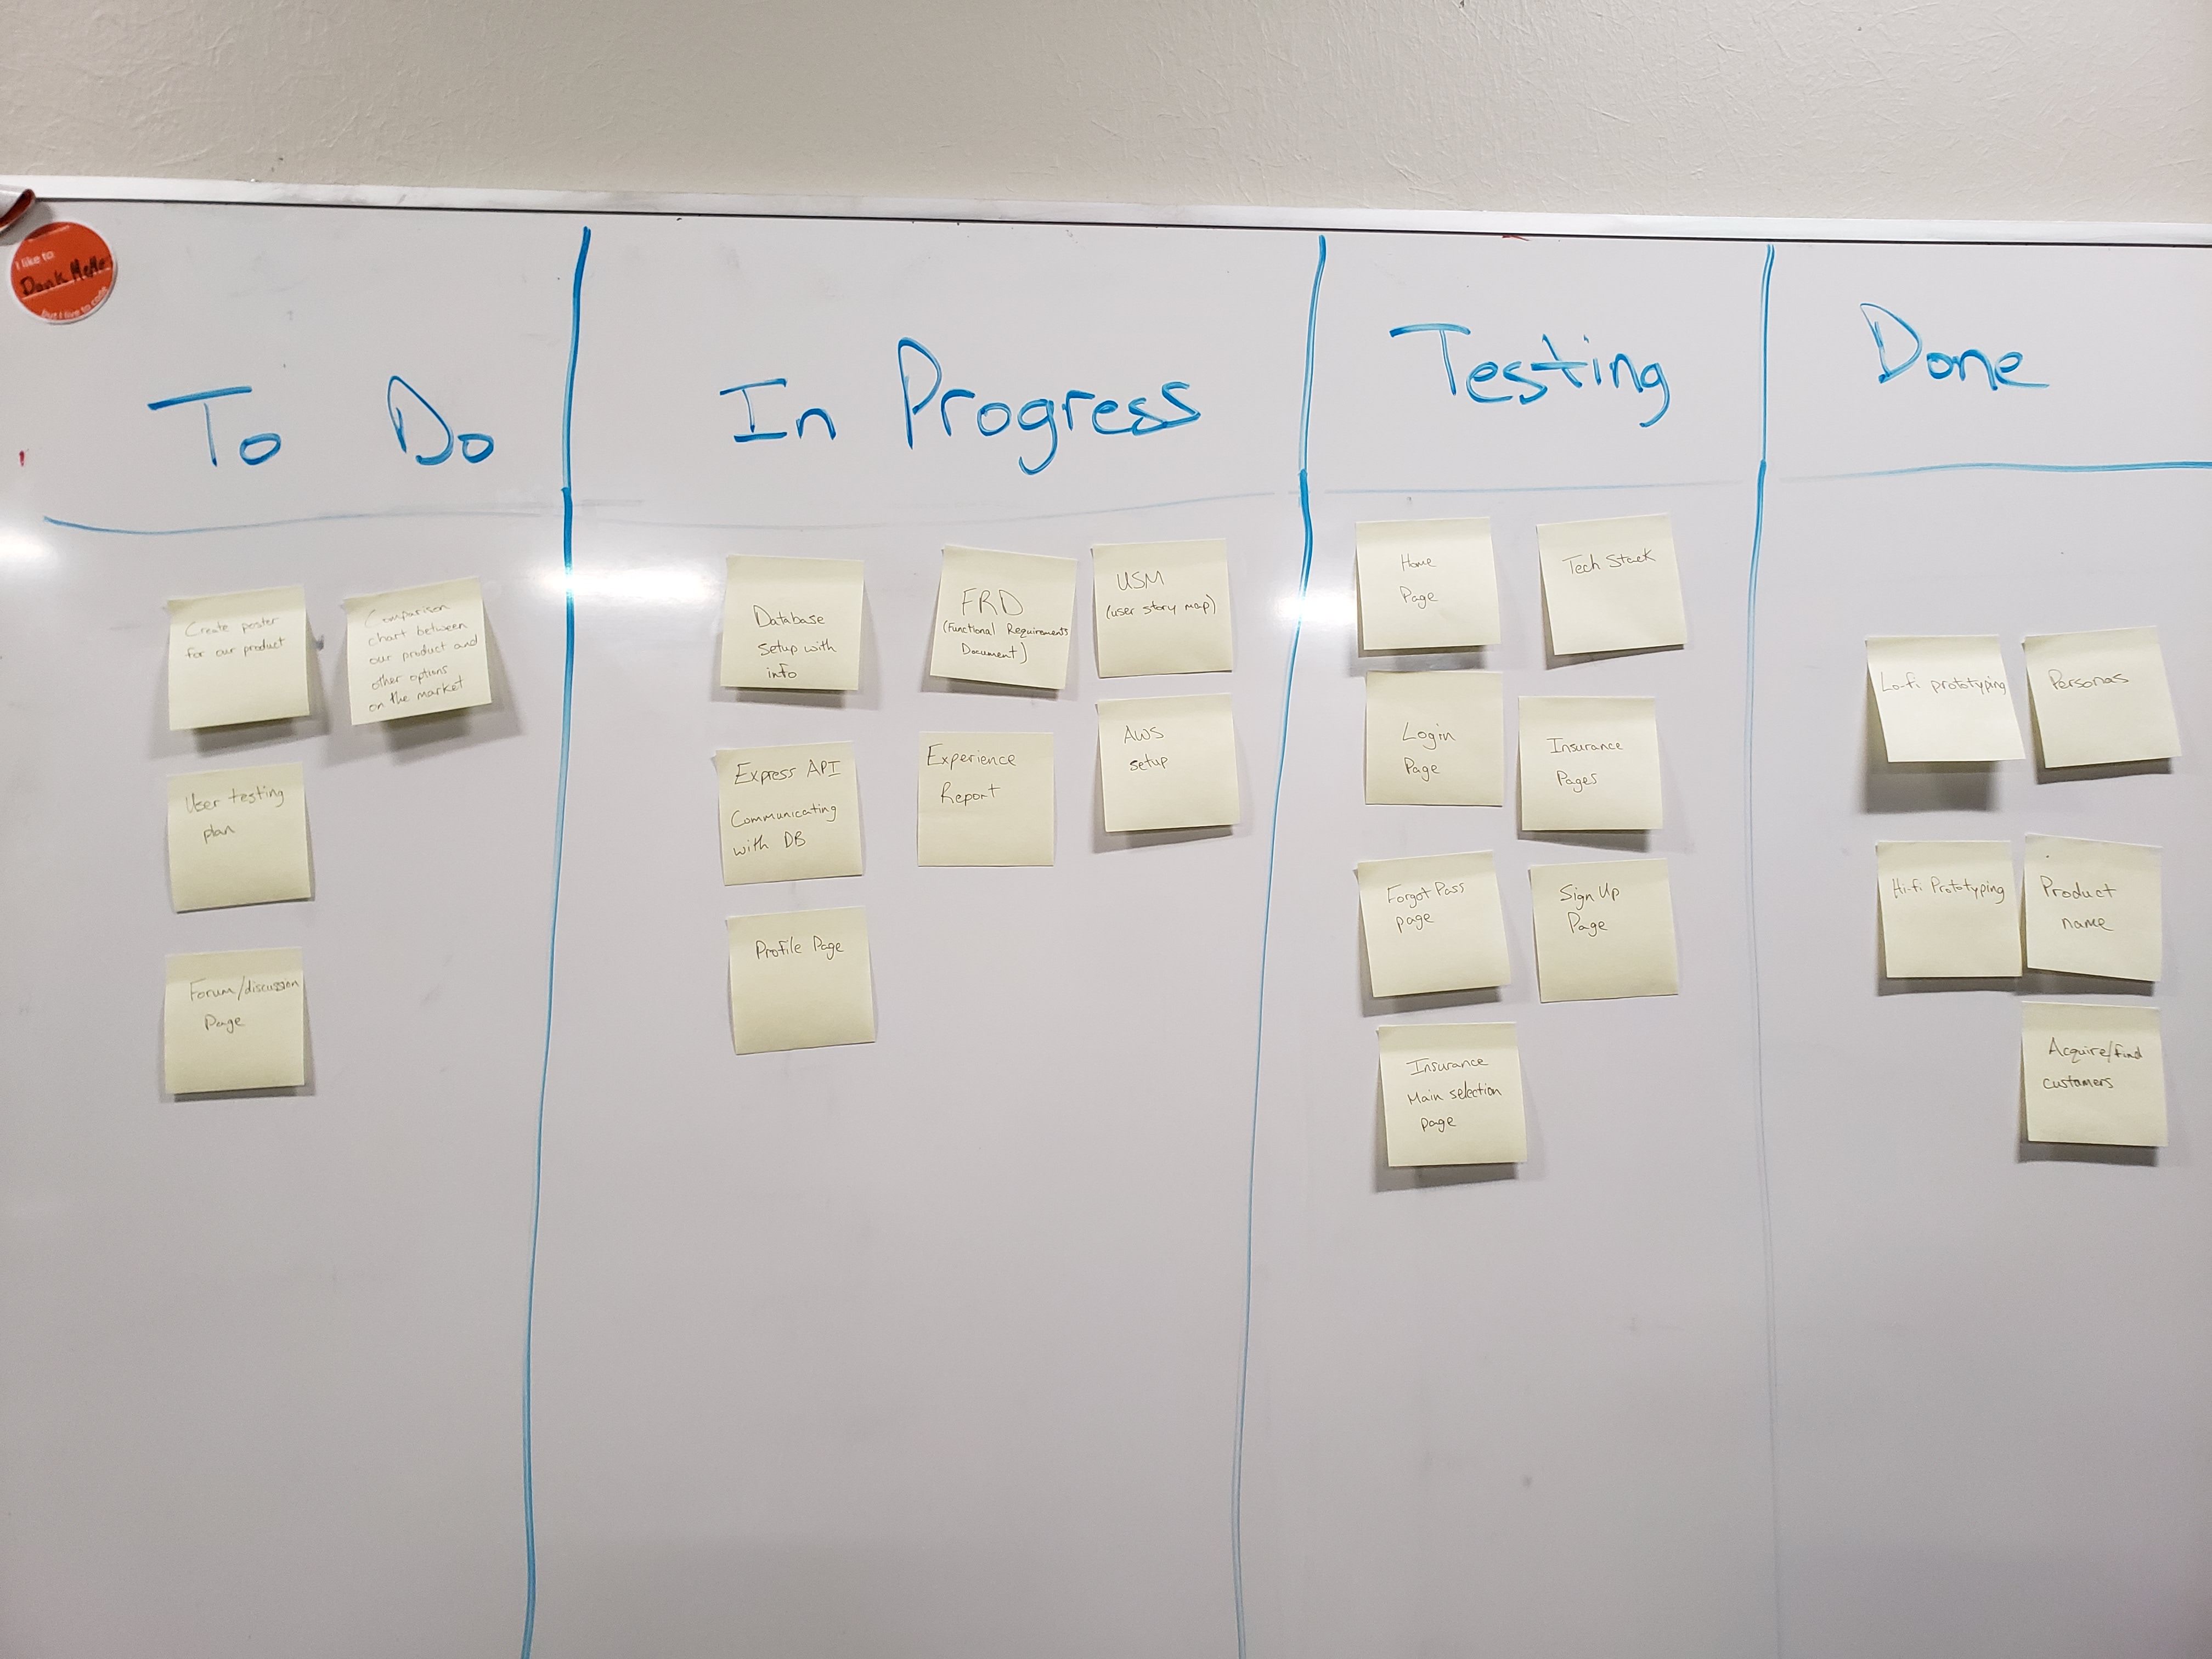 I like to
Dank MeMe
but I live to code
To Do
In Progress
Testing
Done
Create poster
for our product
Comparison
chart between
our product and
other options
on the market
User testing
plan
Forum/discussion
Page
Database
setup with
info
FRD
(Functional Requirements
Document)
USM
(user story map)
Express API
Communicating
with DB
Experience
Report
AWS
setup
Profile Page
Home
Page
Tech Stack
Login
Page
Insurance
Pages
Forgot Pass
page
Sign Up
Page
Insurance
Main selection
page
Lo-fi prototyping
Personas
Hi-fi Prototyping
Product
name
Acquire/find
customers